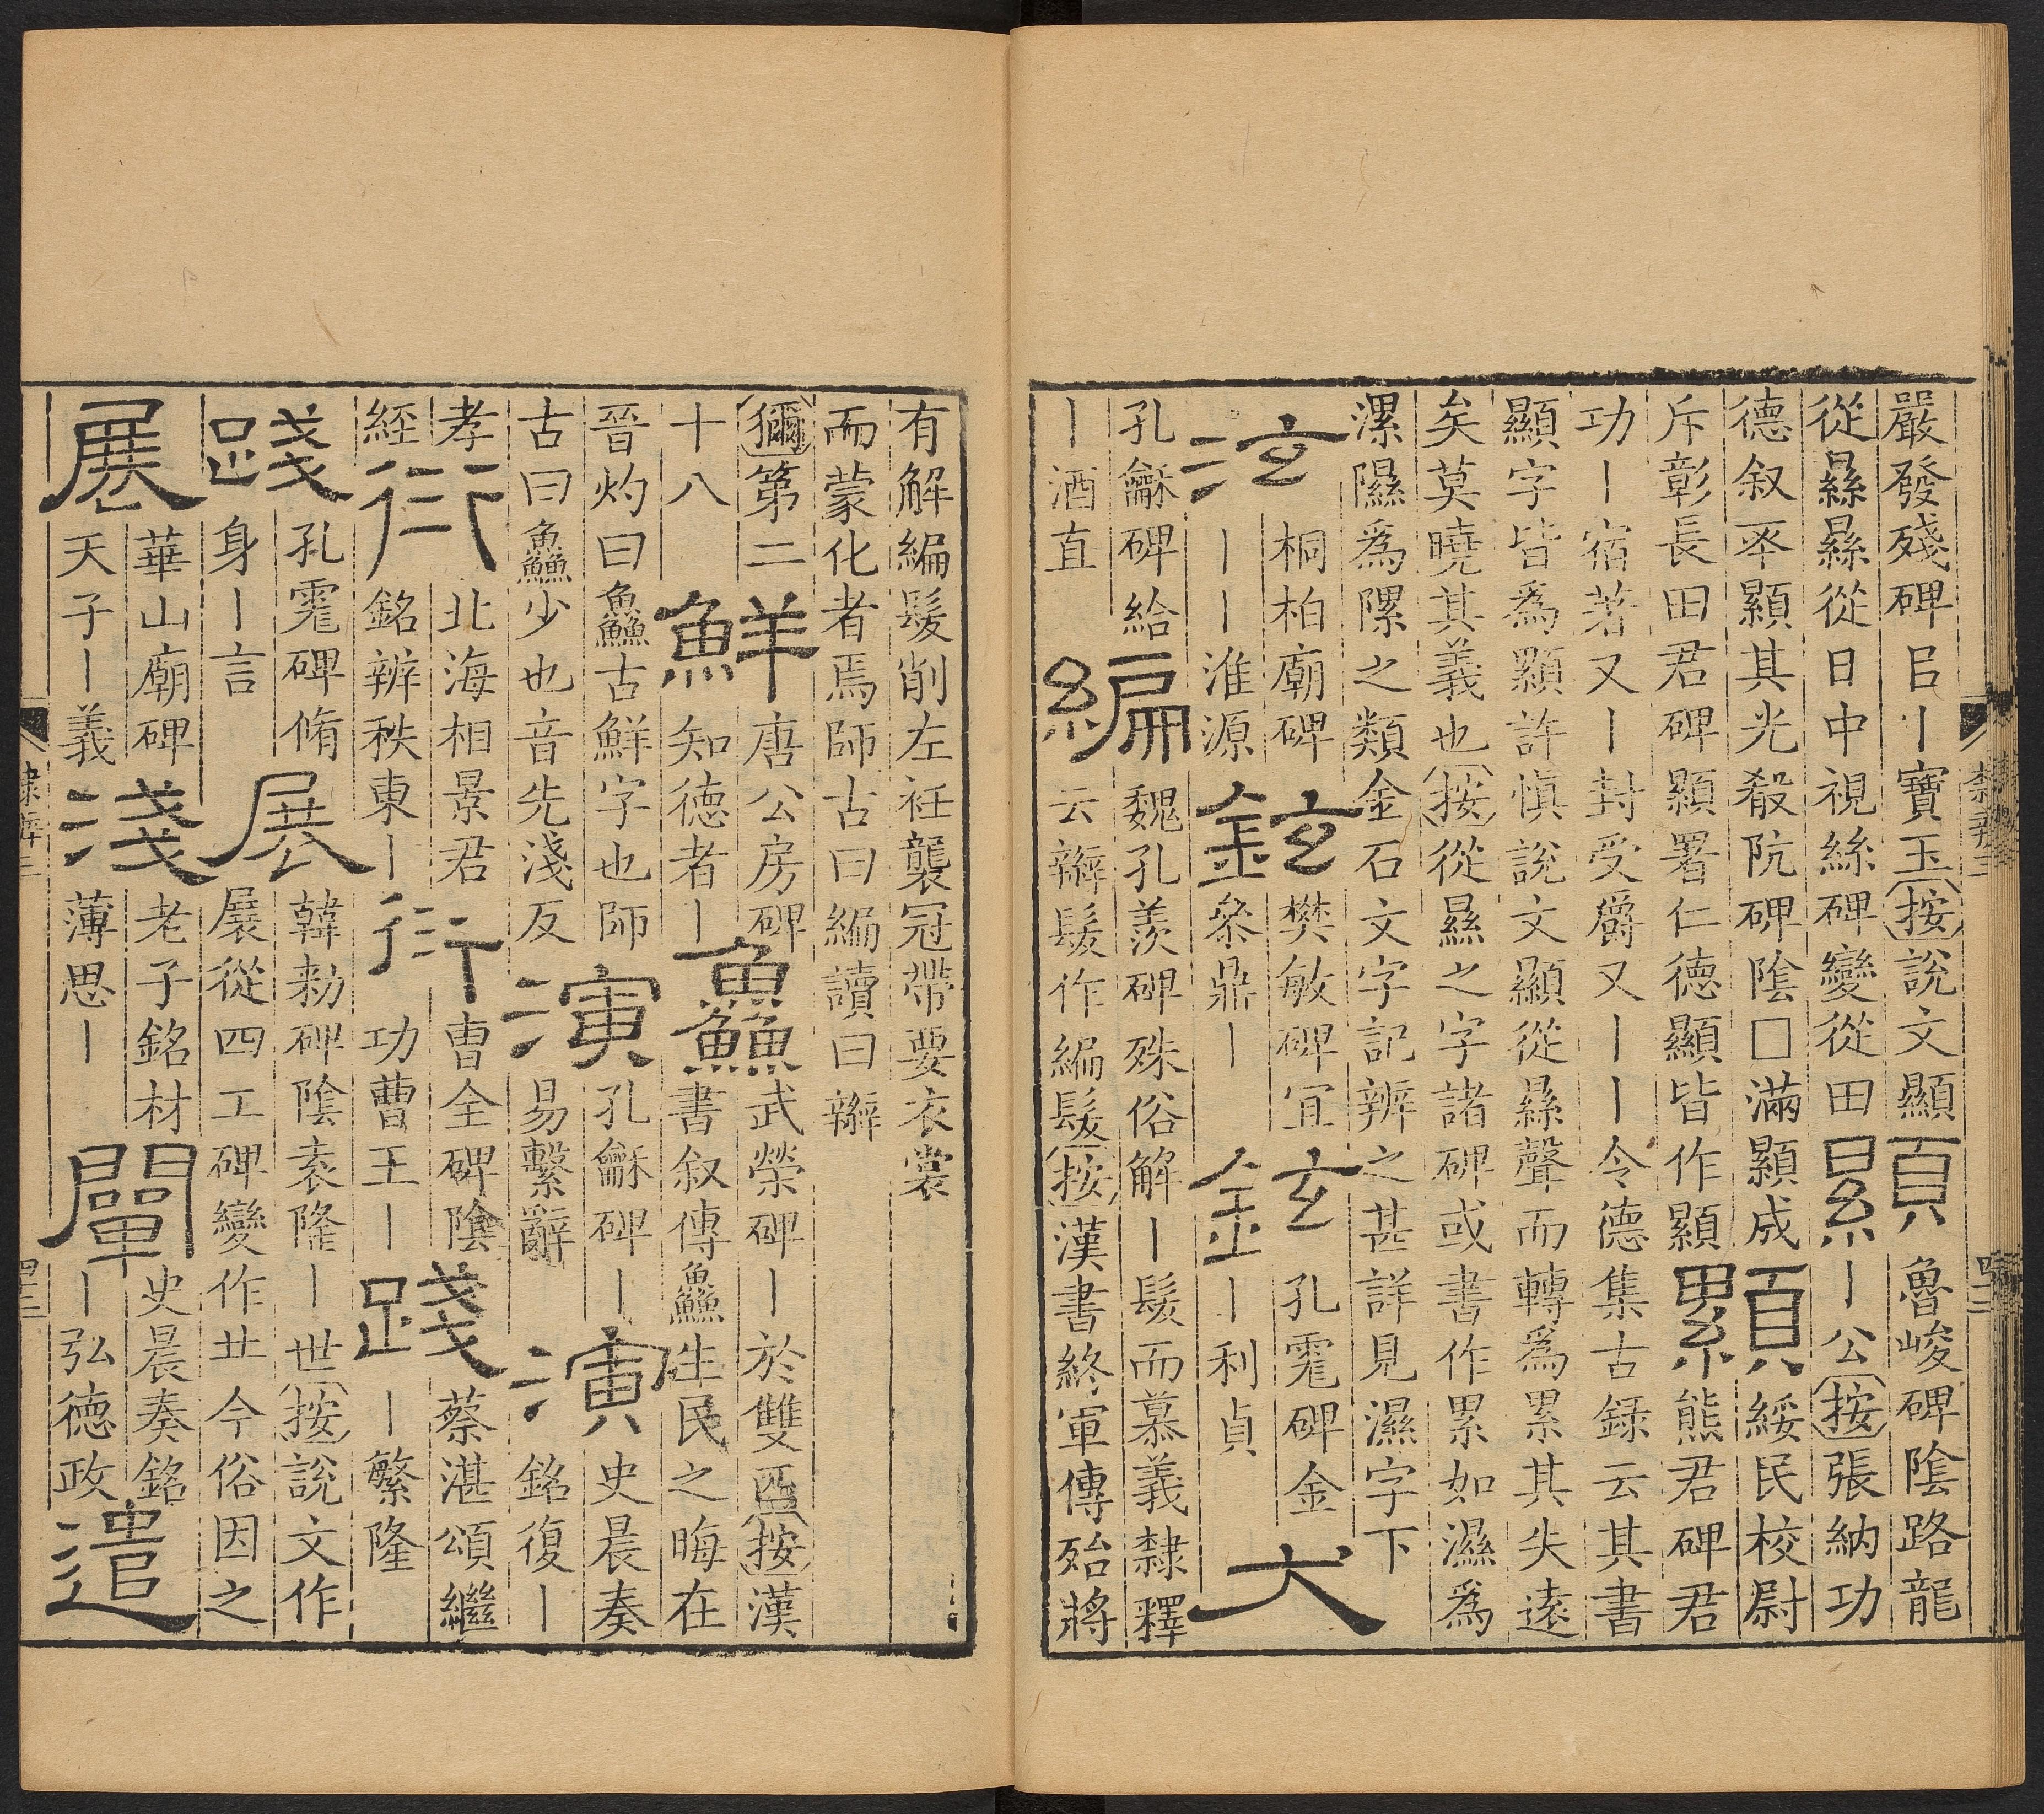 嚴發殘碑㠯丨寶玉按說文顯
從㬎㬎從日中視絲碑變從田
顯
魯峻碑陰路龍
丨公按張納功
德叙卒顯其光殽阬碑陰□滿顯成
斥彰長田君碑顯署仁德顯皆作顯
顯
綏民校尉
熊君碑君
功丨宿著又丨封受爵又丨丨令德集古録云其書
顯字皆爲顯許慎說文顯從㬎聲而轉爲累其失遠
矣莫曉其義也按從㬎之字諸碑或書作累如濕爲
漯隰爲隟之類金石文字記辨之甚詳見濕字下
泫
桐柏廟碑
丨丨淮源
鉉
樊敏碑宜
叅鼎丨
鉉
孔霮碑金
丨利貞
犬
孔龢碑給
丨酒直
編
魏孔羨碑殊俗解丨髮而慕義隸釋
云辮髮作編髮按漢書終軍傳殆將
有解編髮削左衽襲冠帶要衣裳
而蒙化者焉師古曰編讀曰辮
獮第二
十八
鮮
唐公房碑
知德者丨
鱻
武榮碑丨於雙匹按漢
書叙傳鱻生民之晦在
晉灼曰鱻古鮮字也師
古曰鱻少也音先淺反
演
孔龢碑丨
易繫辭
演
史晨奏
銘復丨
孝
經
衍
北海相景君
銘辨秩東丨
衍
曹全碑陰
功曹王丨
踐
蔡湛頌繼
丨繁隆
踐
孔霮碑脩
身丨言
展
韓勑碑陰袁隆丨世按說文作
展從四工碑變作䒑今俗因之
展
華山廟碑
天子丨義
淺
老子銘材
薄思丨
闡
史晨奏銘
丨弘德政
遣